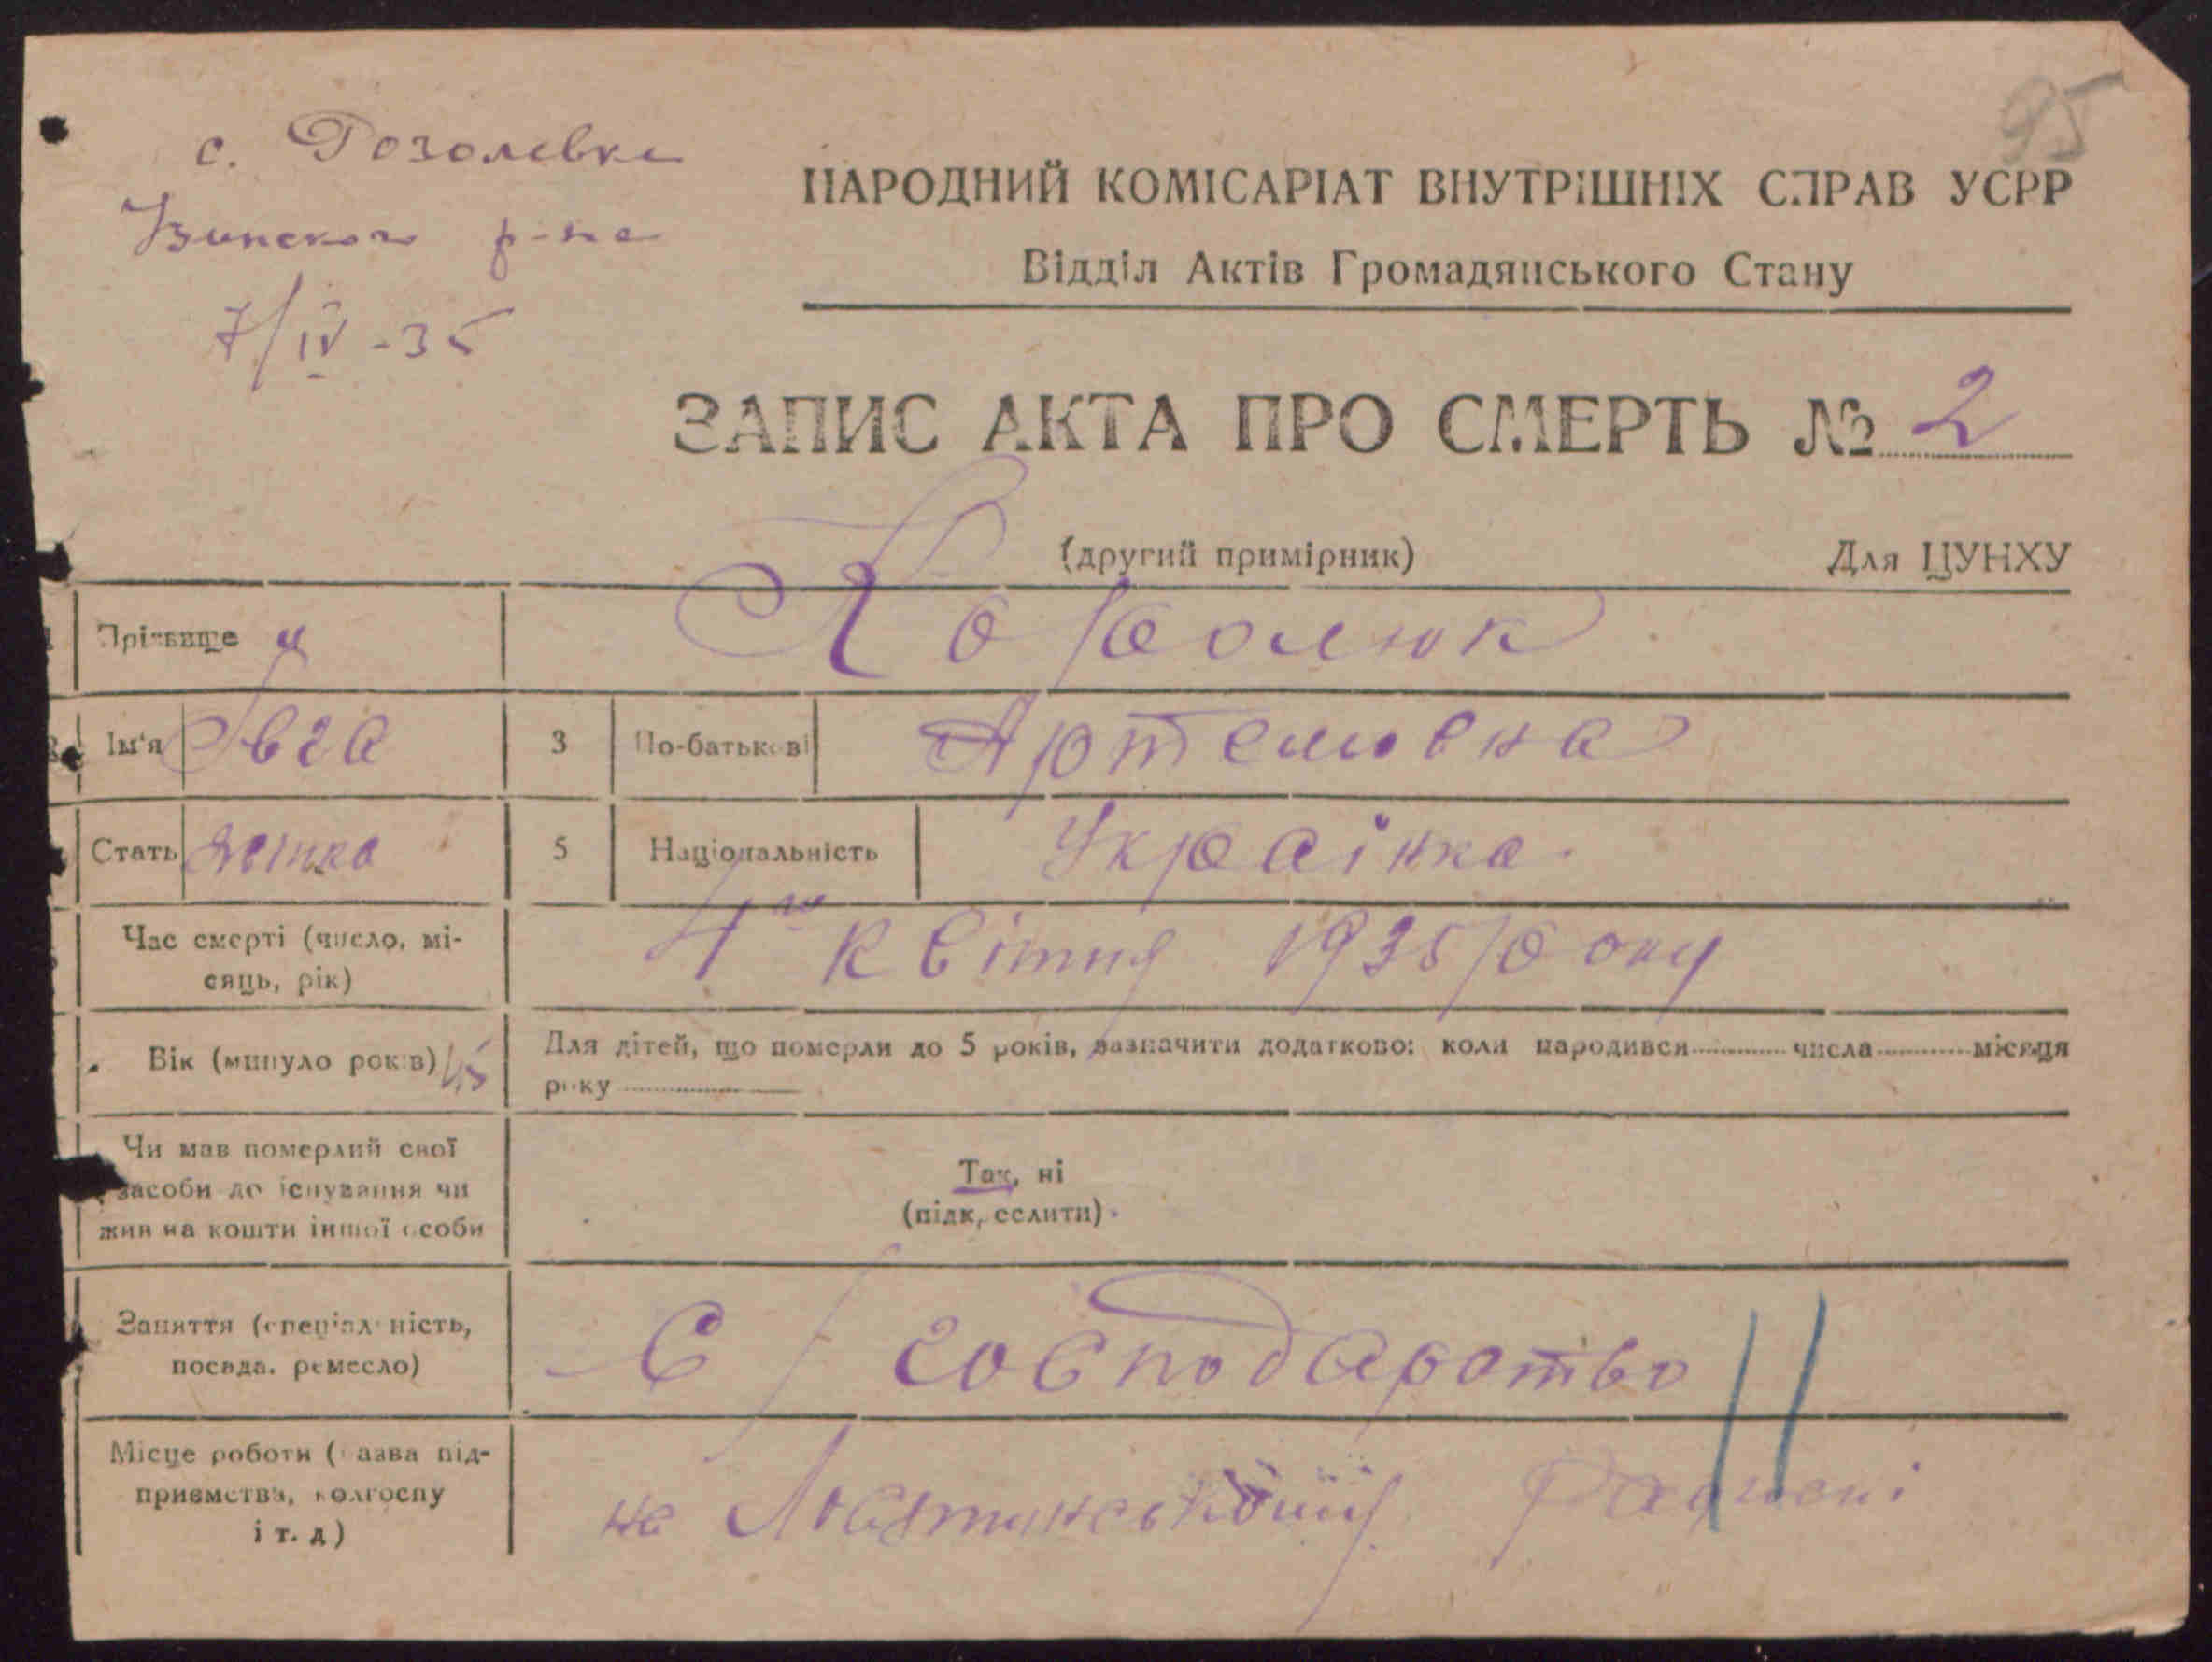 95
с. Розалевке
р-на
7/IV - 35
НАРОДНИЙ КОМІСАРІАТ ВНУТРІШНІХ СПРАВ УСРР
Відділ Актів Громадянського Стану
ЗАПИС АКТА ПРО СМЕРТЬ № 2
(другий примірник) Для ЦУНХУ
Прізвище
Ім'я Євга 3 По-батькові Артемовна
Стать жінка 5 Національність Українка.
Час смерті (число, мі-
сяць, рік) Квітня 1935 року
Вік (минуло років) 45 Для дітей, що померли до 5 років, зазначити додатково: коли народився числа місяця
року
Чи мав померлий свої
засоби до існування чи
жив на кошти іншої особи
Так, ні
(підкреслити)
Заняття (спеціальність,
посада, ремесло) С/господарство
Місце роботи (назва під-
приємства, колгоспу
і т. д)
на